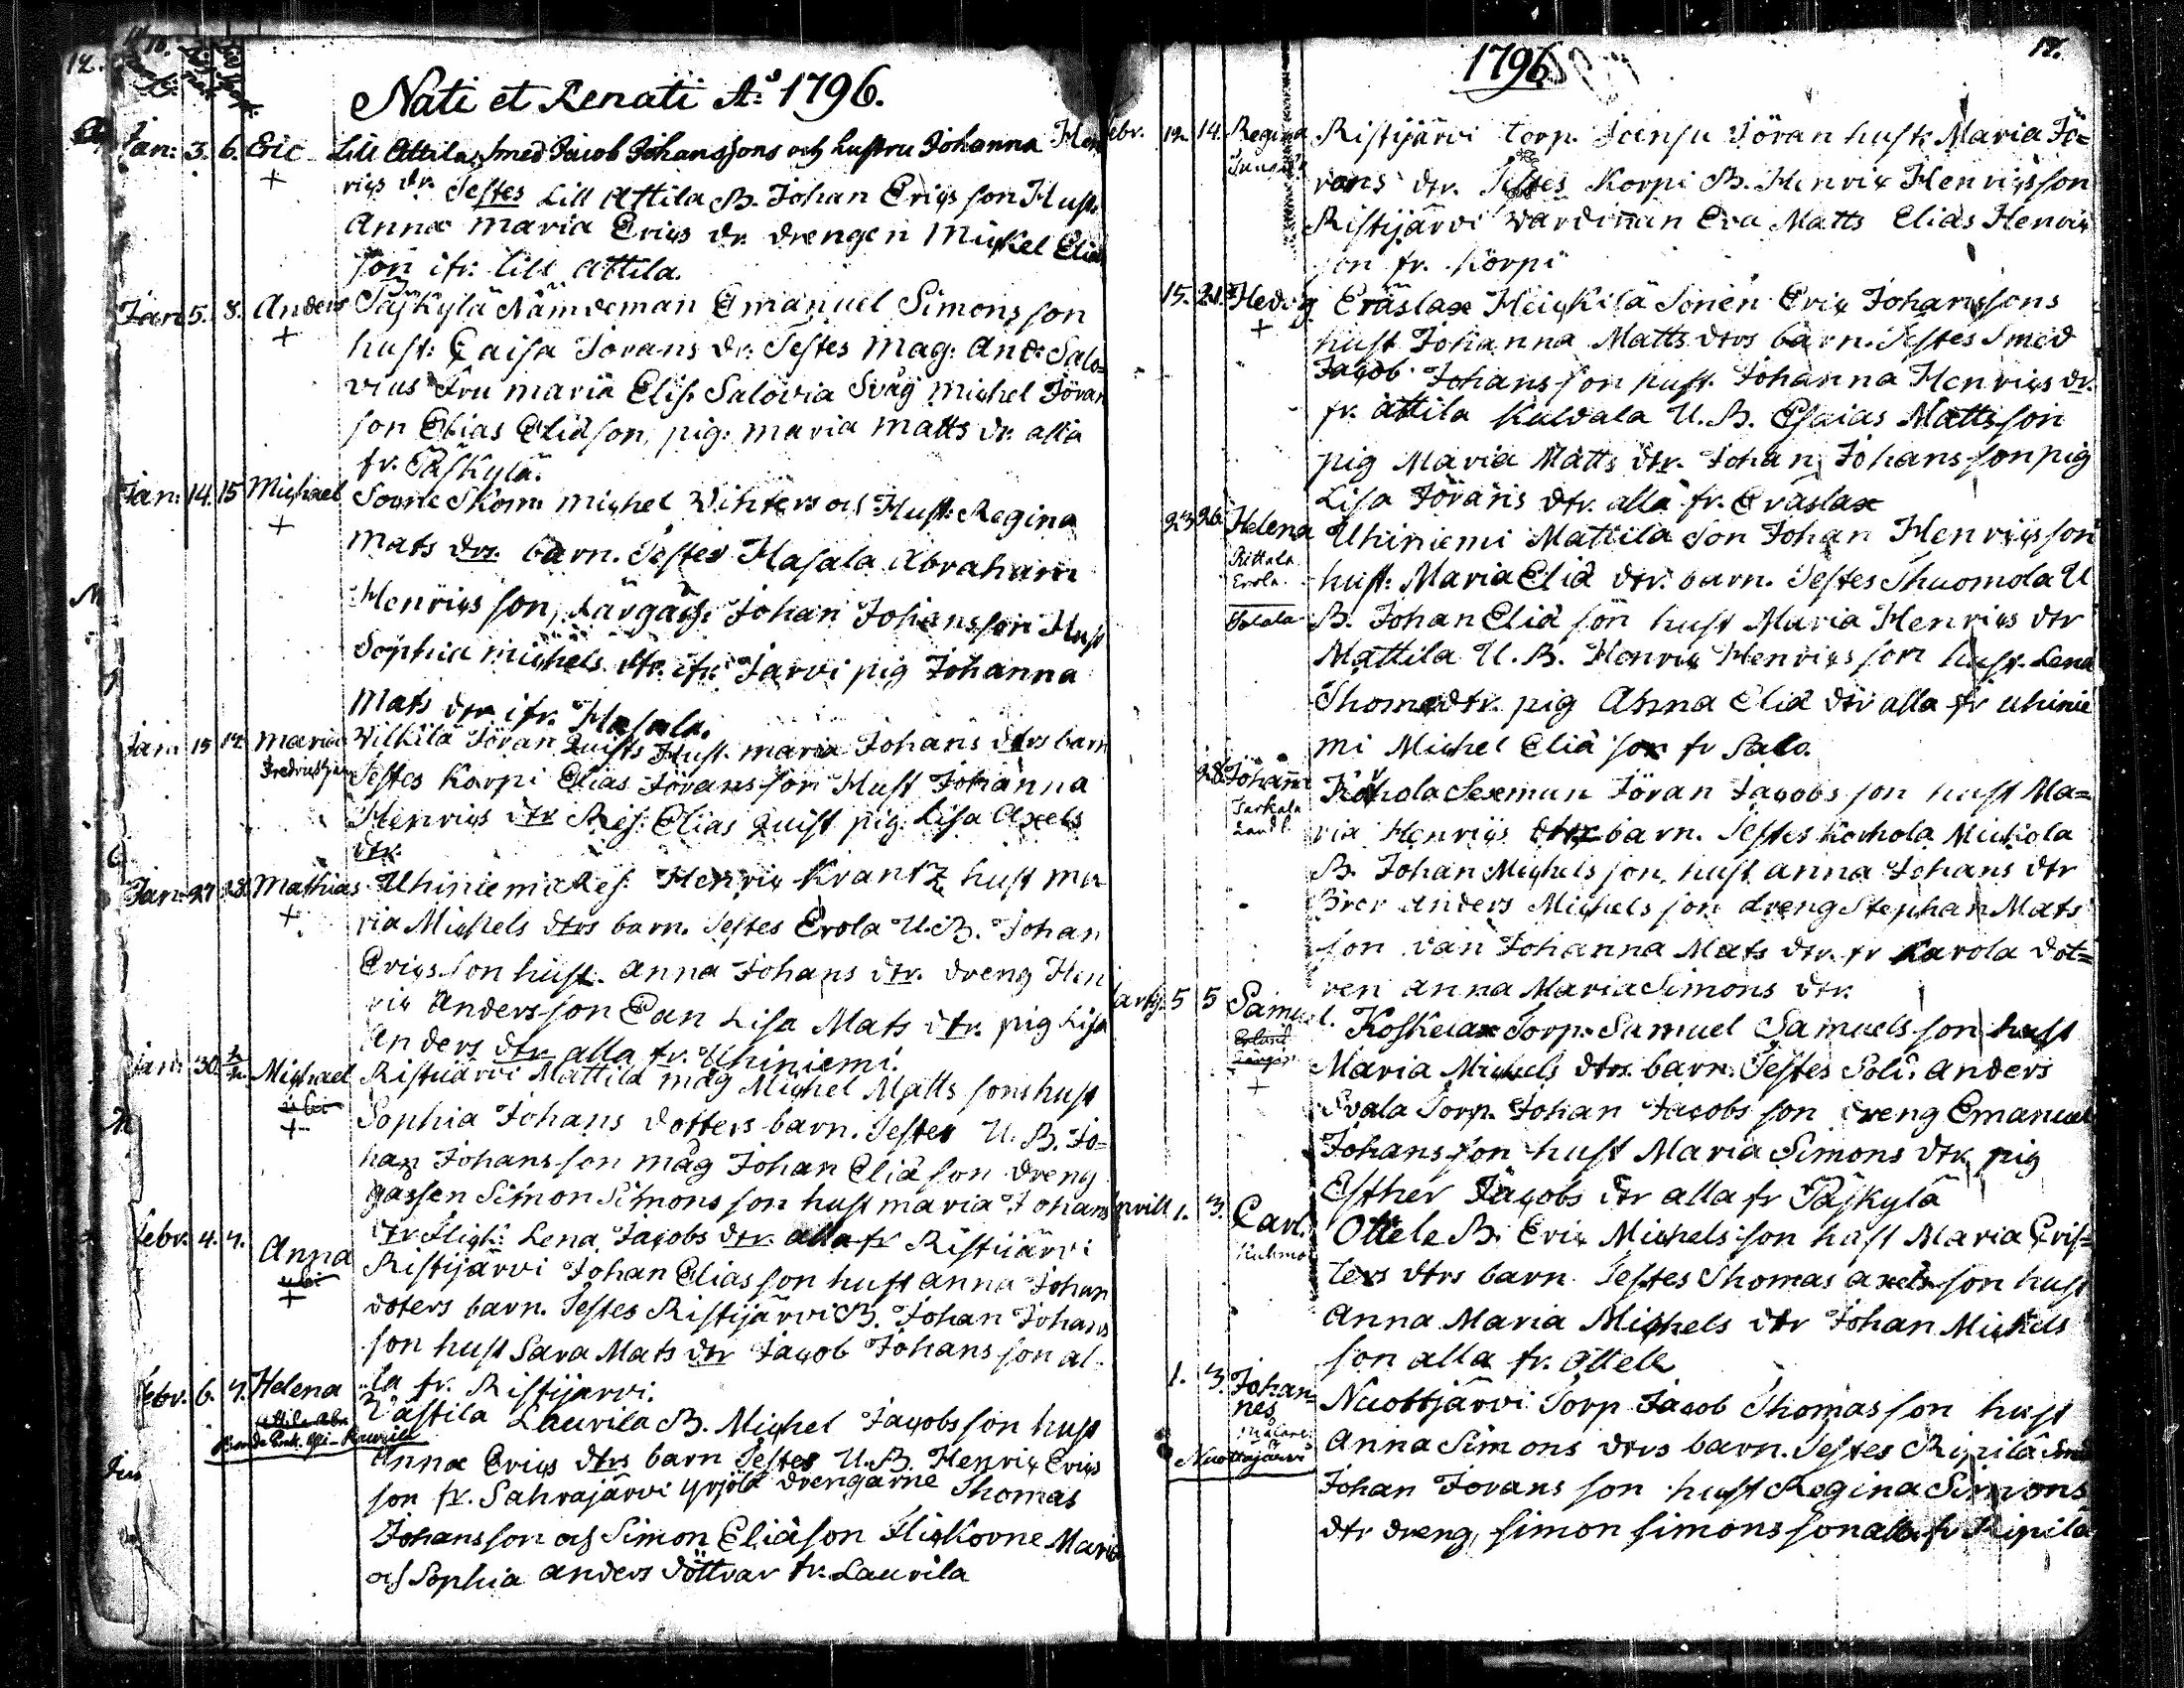 12.
Nati et Renati Aº 1796.
Jan: 3. 6. Eric + Lill Attila Smed Jacob Johanssons och hustru Johanna Hen
rics dr. Testes Lill Attila B. Johan Ericsson Hust.
Anna Maria Erics dr. drengen Mickel Elias
son ifr. Lill Attila.
Jan 5. 8. Anders + Päskylä Nämdeman Emanuel Simonsson
hust: Caisa Jörans dr. Testes Mag: And: Salo=
vius Fru Maria Elis. Salovia Svåg Michel Jöran
son Elias Eliason, pig: Maria Matts dr. alla
fr. Päskylä.
Jan: 14. 15 Michael + Sorne Skom: Michel Vinters och Hust: Regina
Mats dtr. barn. Testes Hasala Abraham
Henrics son, Johan Johansson Hust
Sophia Michels dtr. ifr. Jarvi pig Johanna
Mats dtr ifr. Hasala.
Jan 15 17. Maria Wilkilä Jöran Quists Hust. Maria Johans dtrs barn
Testes Korpi Elias Jöransson Hust Johanna
Henrics dtr Res: Elias Quist pig. Lisa Axels
dtr.
Jan. 27 28. Mathias + Uhiniemi Res: Henric Krantz hust Ma
ria Michels dtrs barn. Testes Erola U.B. Johan
Ericsson hust. Anna Johans dtr. dreng Hen
ric Andersson Lisa Mats dtr. pig Lisa
Anders dtr alla fr. Uhiniemi.
Jan: 30. Michael + Ristijärvi Mattila måg Michel Mattssons hust
Sophia Johans dotters barn. Testes U. B. Jo=
han Johansson måg Johan Eliason dreng
gassen Simon Simonsson hust Maria Johans
dtr Flick: Lena Jacobs dtr alla fr Ristijärvi
Febr. 4. 7. Anna + Ristijärvi Johan Eliasson hust Anna Johan
doters barn. Testes Ristijärvi B. Johan Johans
son hust Sara Mats dtr Jacob Johansson al=
la fr. Ristijarvi.
Febr. 6. 7. Helena Västila Laurila B. Michel Jacobsson hust
Anna Erics dtrs barn Testes U.B. Henric Erics
son fr. Sahrajärvi Yrjölä drengarne Thomas
Johansson och Simon Eliason Flickorne Maria
och Sophia Anders döttrar fr. Laurila
1796.
Febr. 12. 14. Regina Ristijärvi torp. Jöran hust: Maria Jö=
rans dtr. Testes Korpi B. Henric Henricsson
Ristijärvi Värdinnan Eva Matts Elias Henric
son fr. Korpi
15. 21. Hedvig + Eräslax Heickilä Sonen Eric Johanssons
hust Johanna Matts dtrs barn. Testes Smed
Jacob Johansson hust. Johanna Henrics dr.
fr. Attila U. B. Esaias Mattsson
pig Maria Matts dtr. Johan Johansson pig
Lisa Jörans dtr. alla fr. Eräslax
23 26. Helena Uhiniemi Mattila Son Johan Henricsson
Erola
hust: Maria Elia dtr. barn. Testes Thuomola U
B. Johan Elia son hust Maria Henrics dtr
Mattila U. B. Henric Henricsson hust. Lena
Thome dtr. pig Anna Elia dtr alla fr Uhinie
mi Michel Elia son fr Salo.
28. Johanna Sexman Jöran Jacobsson hust Ma=
ria Henrics dtrs barn. Testes Korhola Mickola
B. Johan Michelsson, hust Anna Johans dtr
Bror Anders Michelsson dreng Stephan Mats
son Johanna Mats dtr. fr Karola dot=
ren Anna Maria Simons dtr.
5 5 Samuel. + Koskelax Torp. Samuel Samuelsson hust
Maria Michels dtrs barn. Testes Sold. Anders
Svala Torp. Johan Jacobsson dreng Emanuel
Johansson hust Maria Simons dtr pig
Esther Jacobs dtr alla fr Päskylä
Aprill 1. 3. Carl. Ottele B. Eric Michelsson hust Maria Cris=
ters dtrs barn. Testes Thomas Axelsson hust
Anna Maria Michels dtr Johan Michels
son alla fr. Ottele
1. 3. Johan=
nes Nuottjärvi Torp Jacob Thomasson hust
Nuottajärvi
Anna Simons dtrs barn. Testes Ripilä
Johan Joransson hust Regina Simons
dtr dreng Simon Simonsson alla fr Ripilä